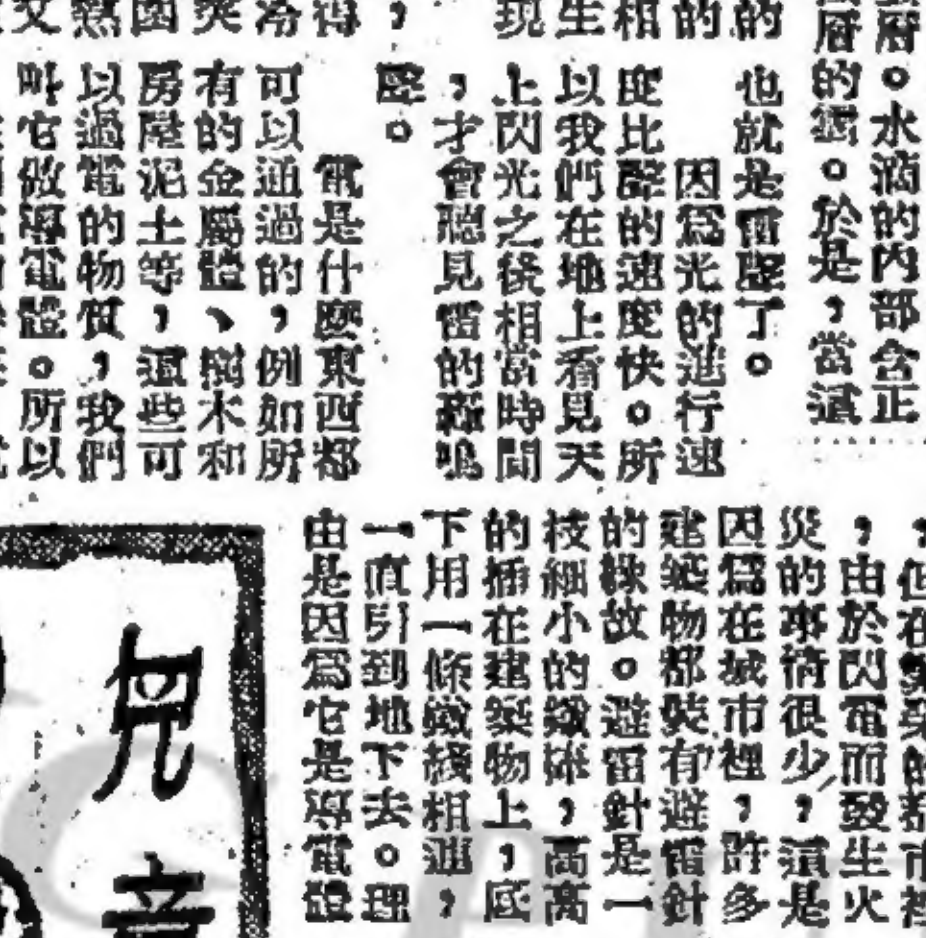 層。水滴的內部含正
層的電。於是，當這
的
也就是雷聲了。
的
因爲光的進行速
相
度比聲的速度快。所
生
以我們在地上看見天
現
上閃光之後相當時間
，
，才會聽見雷的轟鳴
聲。
得
電是什麼東西都
冷
可以通過的，例如所
爽
有的金屬體、樹木和
因
房屋泥土等，這些可
熱
以過電的物質，我們
文
叫它做導電體。所以
，由於閃電而發生火
災的事情很少，這是
因爲在城市裡，許多
建築物都裝有避雷針
的緣故。避雷針是一
枝細小的鐵絲，高高
的插在建築物上，底
下用一條鐵綫相連，
一直引到地下去。理
由是因爲它是導電體
兒童